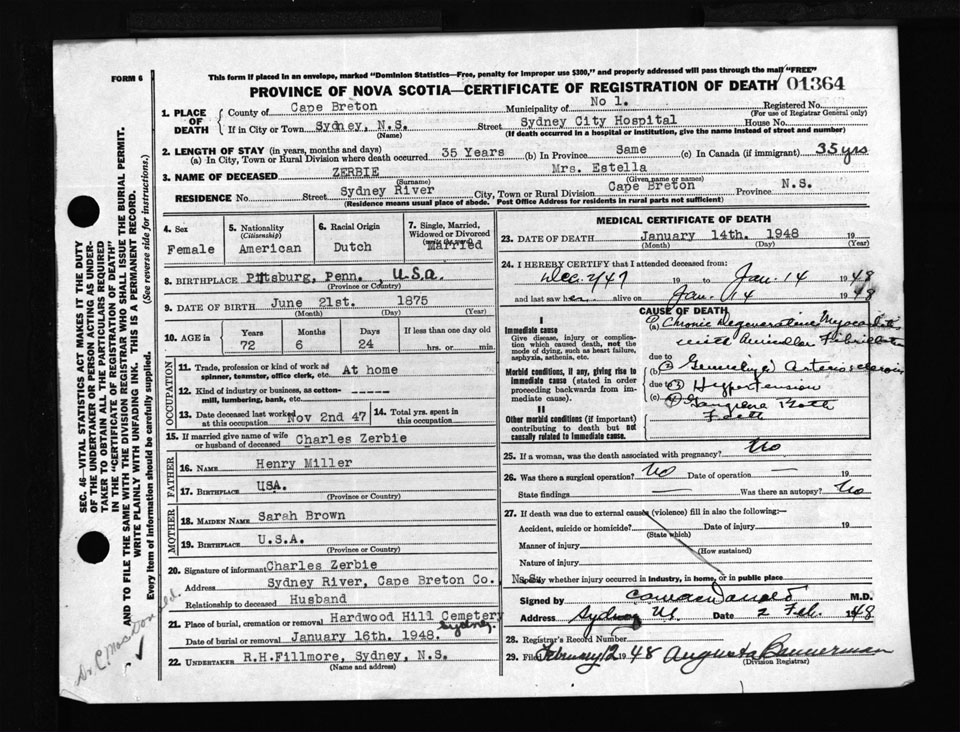 FORM 6
This form if placed in an envelope, marked "Dominion Statistics—Free, penalty for improper use $300," and properly addressed will pass through the mail "FREE"
PROVINCE OF NOVA SCOTIA—CERTIFICATE OF REGISTRATION OF DEATH 01364
1. PLACE OF DEATH
County of Cape Breton Municipality of No 1. Registered No.
(For use of Registrar General only)
If in City or Town Sydney, N.S. Street Sydney City Hospital House No.
(Name) (If death occurred in a hospital or institution, give the name instead of street and number)
2. LENGTH OF STAY (in years, months and days)
(a) In City, Town or Rural Division where death occurred 35 Years (b) In Province Same (c) In Canada (if immigrant) 35 yrs
3. NAME OF DECEASED ZERBIE Mrs. Estella
(Surname) (Given name or names)
RESIDENCE No. Street Sydney River City, Town or Rural Division Cape Breton Province N.S.
(Residence means usual place of abode. Post Office Address for residents in rural parts not sufficient)
4. Sex
Female
5. Nationality
(Citizenship)
American
6. Racial Origin
Dutch
7. Single, Married, Widowed or Divorced
(write the word)
Married
8. BIRTHPLACE Pittsburg, Penn. , U.S.a.
(Province or Country)
9. DATE OF BIRTH June 21st. 1875
(Month) (Day) (Year)
10. AGE in
Years Months Days If less than one day old
72 6 24 hrs. or min.
OCCUPATION
11. Trade, profession or kind of work as spinner, teamster, office clerk, etc. At home
12. Kind of industry or business, as cotton-mill, lumbering, bank, etc.
13. Date deceased last worked at this occupation Nov 2nd 47
14. Total yrs. spent in this occupation
15. If married give name of wife or husband of deceased Charles Zerbie
FATHER
16. NAME Henry Miller
17. BIRTHPLACE USA.
(Province or Country)
MOTHER
18. MAIDEN NAME Sarah Brown
19. BIRTHPLACE U.S.A.
(Province or Country)
20. Signature of informant Charles Zerbie
Address Sydney River, Cape Breton Co. N.S.
Relationship to deceased Husband
21. Place of burial, cremation or removal Hardwood Hill Cemetery
Sydney.
Date of burial or removal January 16th. 1948.
22. UNDERTAKER R.H.Fillmore, Sydney, N.S.
(Name and address)
MEDICAL CERTIFICATE OF DEATH
23. DATE OF DEATH January 14th. 1948 19
(Month) (Day) (Year)
24. I HEREBY CERTIFY that I attended deceased from:
Dec. 2/47 19 to Jan. 14 1948
and last saw her alive on Jan. 14 1948
CAUSE OF DEATH
I
Immediate cause
Give disease, injury or complication which caused death, not the mode of dying, such as heart failure, asphyxia, asthenia, etc.
(a) Chronic Degenerative Myocarditis
with Auricular Fibrillation
due to
Morbid conditions, if any, giving rise to immediate cause (stated in order proceeding backwards from immediate cause)
(b) Generalized Arteriosclerosis
due to Hypertension
(c) Gangrene Both
Feet
II
Other morbid conditions (if important) contributing to death but not causally related to immediate cause.
25. If a woman, was the death associated with pregnancy? No
26. Was there a surgical operation? No Date of operation — 19
State findings — Was there an autopsy? No
27. If death was due to external causes (violence) fill in also the following:—
Accident, suicide or homicide? Date of injury 19
(State which)
Manner of injury
(How sustained)
Nature of injury
Specify whether injury occurred in industry, in home, or in public place
Signed by M.D.
Address Sydney NS Date 2 Feb. 1948
28. Registrar's Record Number
29. Filed February 12 1948 Augusta Bannerman
(Division Registrar)
SEC. 46—VITAL STATISTICS ACT MAKES IT THE DUTY
OF THE UNDERTAKER OR PERSON ACTING AS UNDER-
TAKER TO OBTAIN ALL THE PARTICULARS REQUIRED
IN THE "CERTIFICATE OF REGISTRATION OF DEATH"
AND TO FILE THE SAME WITH THE DIVISION REGISTRAR WHO SHALL ISSUE THE BURIAL PERMIT.
WRITE PLAINLY WITH UNFADING INK. THIS IS A PERMANENT RECORD.
Every item of information should be carefully supplied. (See reverse side for instructions.)
Dr. C. MacDonald.